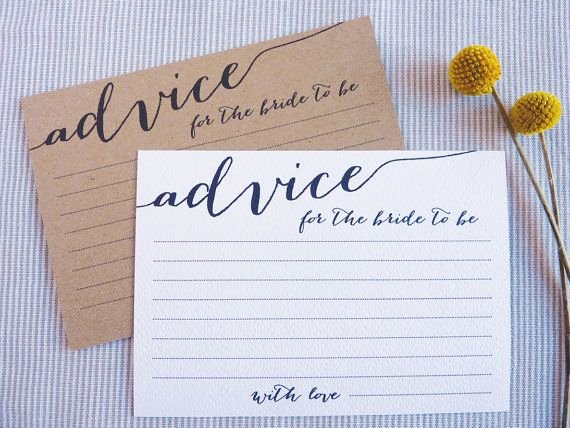 advice
for the bride to be
advice
for the bride to be
with love